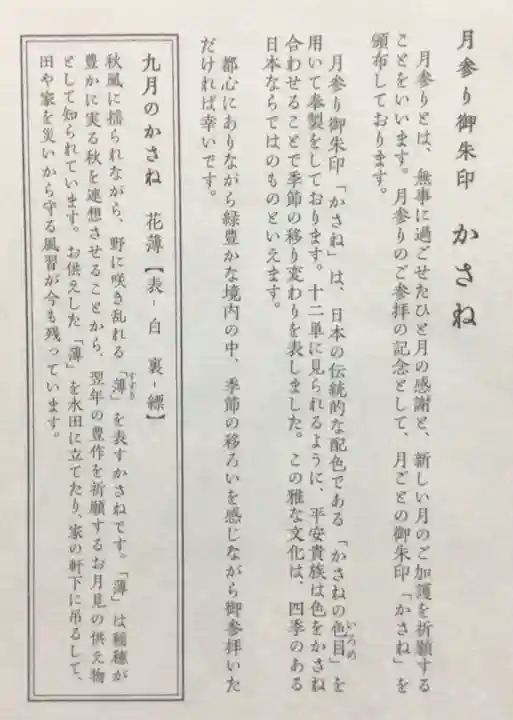 月参り御朱印 かさね
月参りとは、無事に過ごせたひと月の感謝と、新しい月のご加護を祈願する
ことをいいます。月参りのご参拝の記念として、月ごとの御朱印「かさね」を
頒布しております。
月参り御朱印「かさね」は、日本の伝統的な配色である「かさねの色目」を
いろめ
用いて奉製をしております。十二単に見られるように、平安貴族は色をかさね
合わせることで季節の移り変わりを表しました。この雅な文化は、四季のある
日本ならではのものといえます。
都心にありながら緑豊かな境内の中、季節の移ろいを感じながら御参拝いた
だければ幸いです。
九月のかさね 花薄【表-白 裏-縹】
秋風に揺られながら、野に咲き乱れる「薄」を表すかさねです。「薄」は稲穂が
すすき
豊かに実る秋を連想させることから、翌年の豊作を祈願するお月見の供え物
として知られています。お供えした「薄」を水田に立てたり、家の軒下に吊るして、
田や家を災いから守る風習が今も残っています。